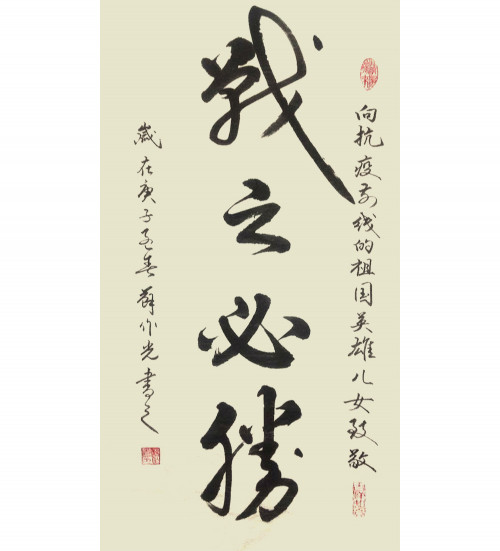 向抗疫前线的祖国英雄儿女致敬
戰之必勝
歲在庚子孟春薛作光書之